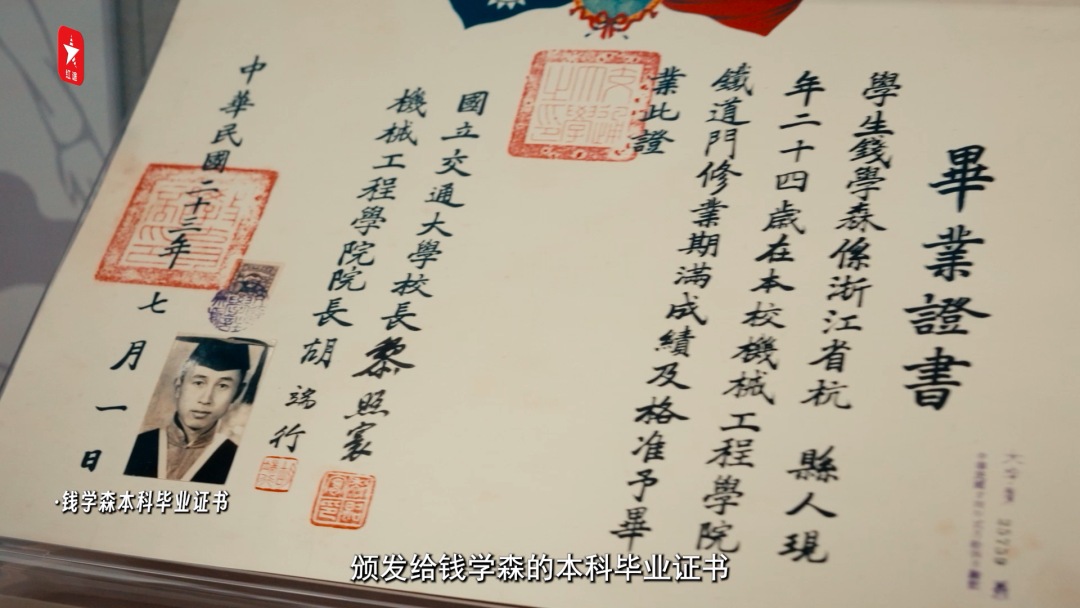 畢業證書
學生錢學森係浙江省杭縣人現
年二十四歲在本校機械工程學院
鐵道門修業期滿成績及格准予畢
業此證
國立交通大學校長黎照寰
機械工程學院院長胡端行
中華民國二十三年七月一日
·钱学森本科毕业证书
颁发给钱学森的本科毕业证书